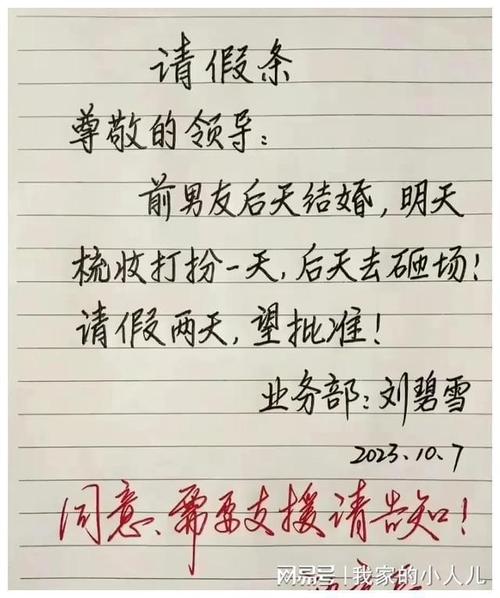 请假条
尊敬的领导：
前男友后天结婚，明天
梳妆打扮一天，后天去砸场！
请假两天，望批准！
业务部：刘碧雪
2023.10.7
同意、需要支援请告知！
网易号 | 我家的小人儿